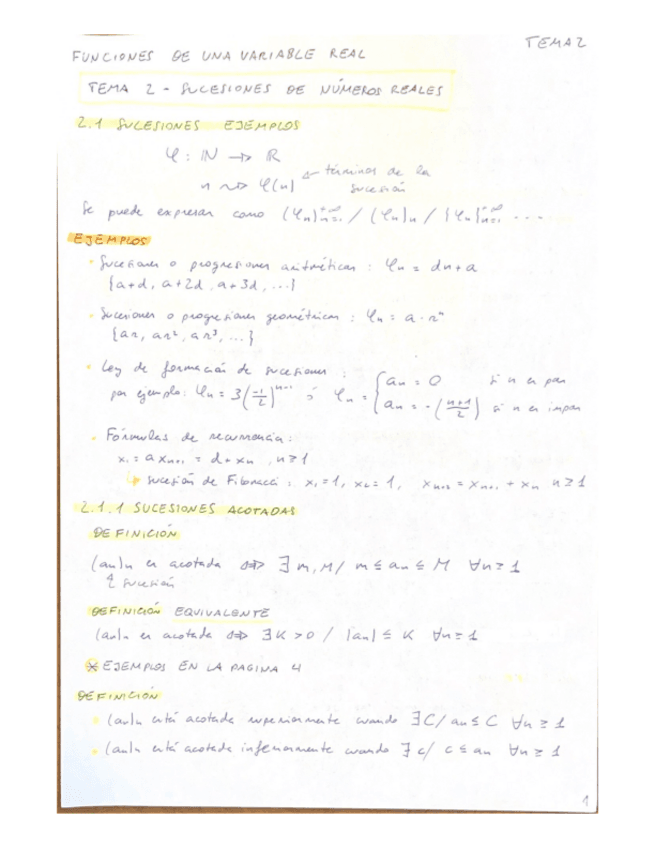 TEMA2
FUNCIONES DE UNA VARIABLE REAL
TEMA 2 - SUCESIONES DE NÚMEROS REALES
2.1 SUCESIONES EJEMPLOS
φ: ℕ → ℝ
n ⇝ φ(n) ← términos de la sucesión
Se puede expresar como (φn)_{n=1}^{+∞} / (φn)n / {φn}_{n=1}^{+∞} ...
EJEMPLOS
· Sucesiones o progresiones aritméticas : φn = dn+a
{a+d, a+2d, a+3d, ...}
· Sucesiones o progresiones geométricas : φn = a·r^n
{ar, ar², ar³, ...}
· Ley de formación de sucesiones :
por ejemplo: φn = 3(-1/2)^{n-1} ó φn = { an = 0 si n es par
an = -((n+1)/2) si n es impar
· Fórmulas de recurrencia:
x₁ = a xn+1 = d+xn , n≥1
↳ sucesión de Fibonacci : x₁=1, x₂=1, xn+2 = xn+1 + xn n≥1
2.1.1 SUCESIONES ACOTADAS
DEFINICIÓN
(an)n es acotada ⇔ ∃ m,M/ m≤an≤M ∀n≥1
↑ sucesión
DEFINICIÓN EQUIVALENTE
(an)n es acotada ⇔ ∃K>0 / |an|≤K ∀n≥1
* EJEMPLOS EN LA PAGINA 4
DEFINICIÓN
· (an)n está acotada superiormente cuando ∃C/ an≤C ∀n≥1
· (an)n está acotada inferiormente cuando ∃c/ c≤an ∀n≥1
1